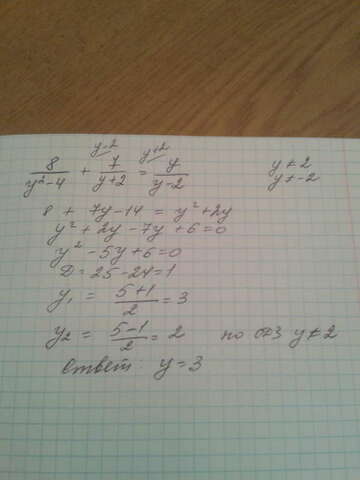 8/(y²-4) + 7/(y+2) (y-2) = y/(y-2) (y+2)    y ≠ 2
y ≠ -2
8 + 7y - 14 = y² + 2y
y² + 2y - 7y + 6 = 0
y² - 5y + 6 = 0
D = 25 - 24 = 1
y₁ = (5+1)/2 = 3
y₂ = (5-1)/2 = 2    по ОДЗ y ≠ 2
Ответ: y = 3